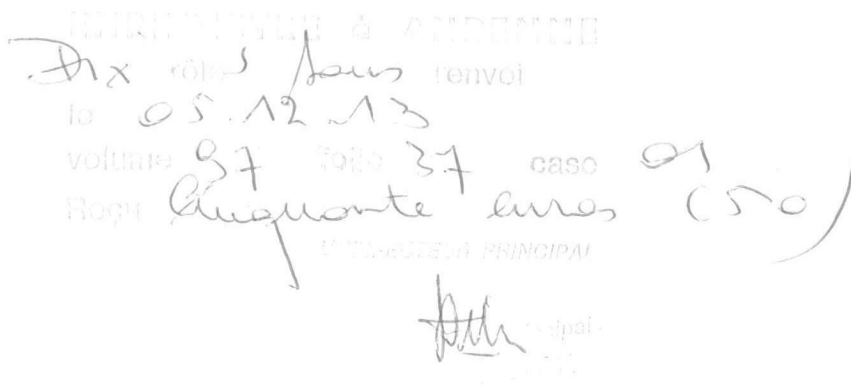 ENREGISTRE à ANDENNE
Dix rôles sans renvoi
le 05.12.13
volume 97 folio 37 case 01
Reçu Cinquante euros (50)
L'INSPECTEUR PRINCIPAL